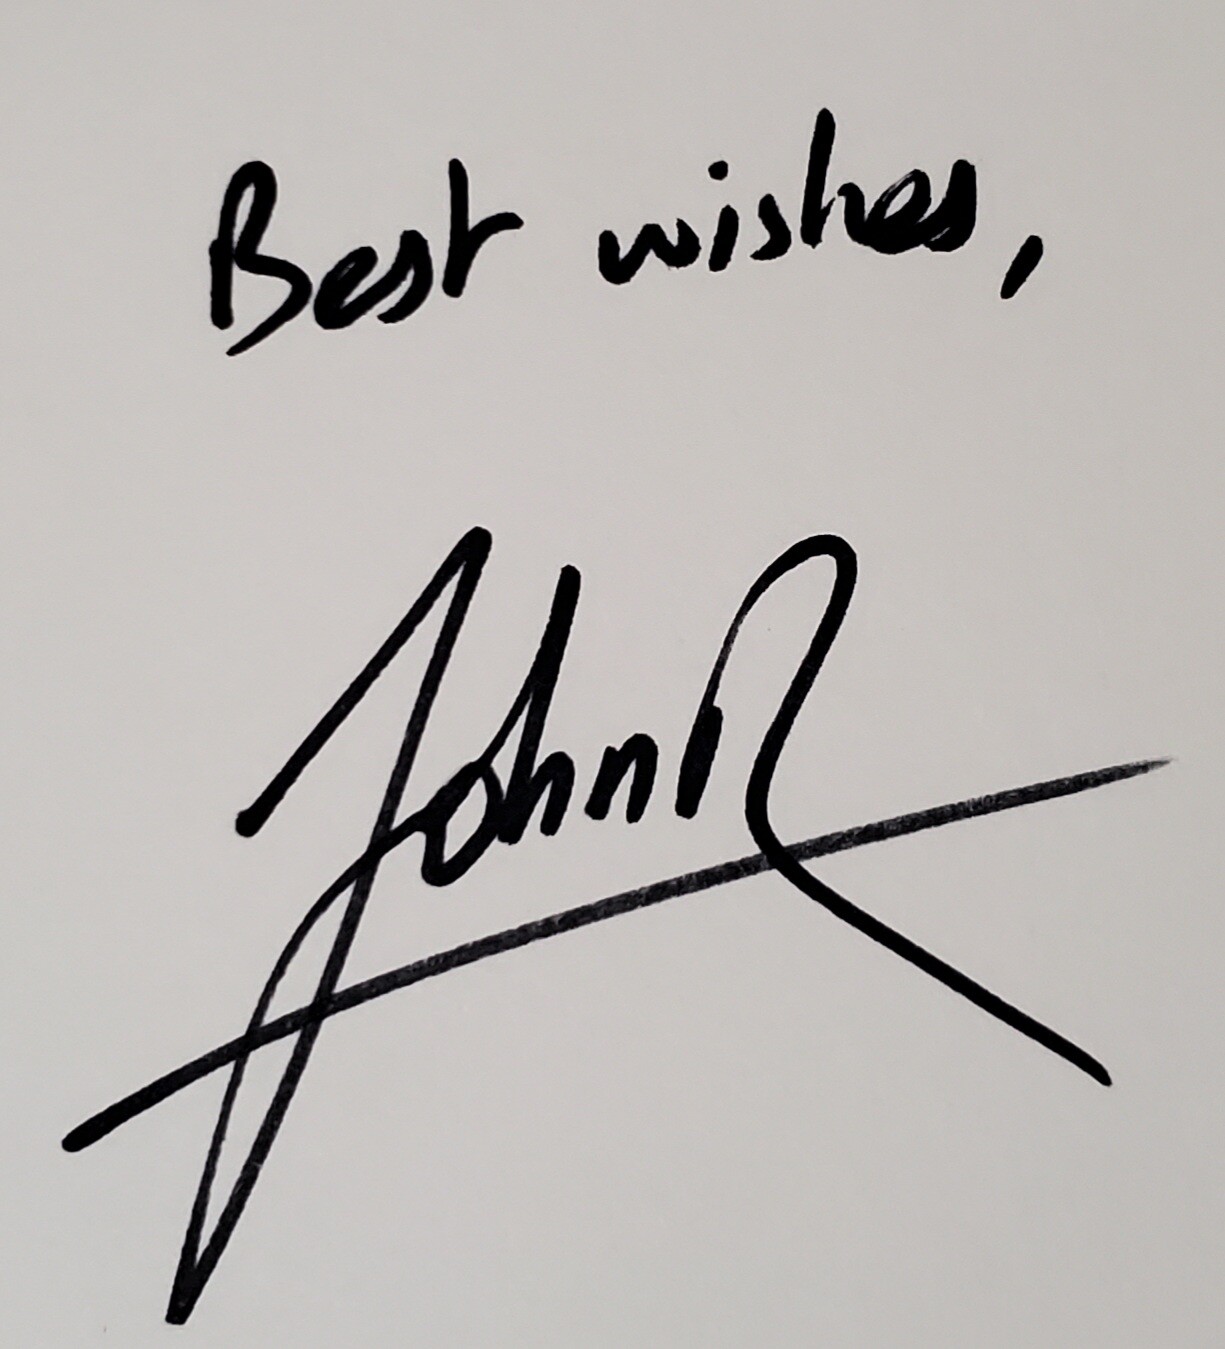 Best wishes,
JohnR